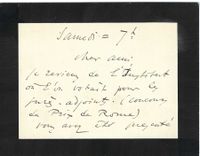 Samedi = 7h
cher ami
je reviens de l'Institut
où l'on votait pour les
jurés-adjoint. (concours
du Prix de Rome)
vous avez été